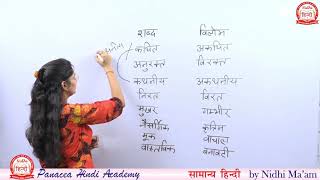 शब्द विलोम
कथित अकथित
अनुरक्त विरक्त
कथनीय अकथनीय
निरत विरत
मुखर गम्भीर
नैसर्गिक कृत्रिम
मूक वाचाल
वास्तविक बनावटी
Panacea Hindi Academy
सामान्य हिन्दी by Nidhi Ma'am